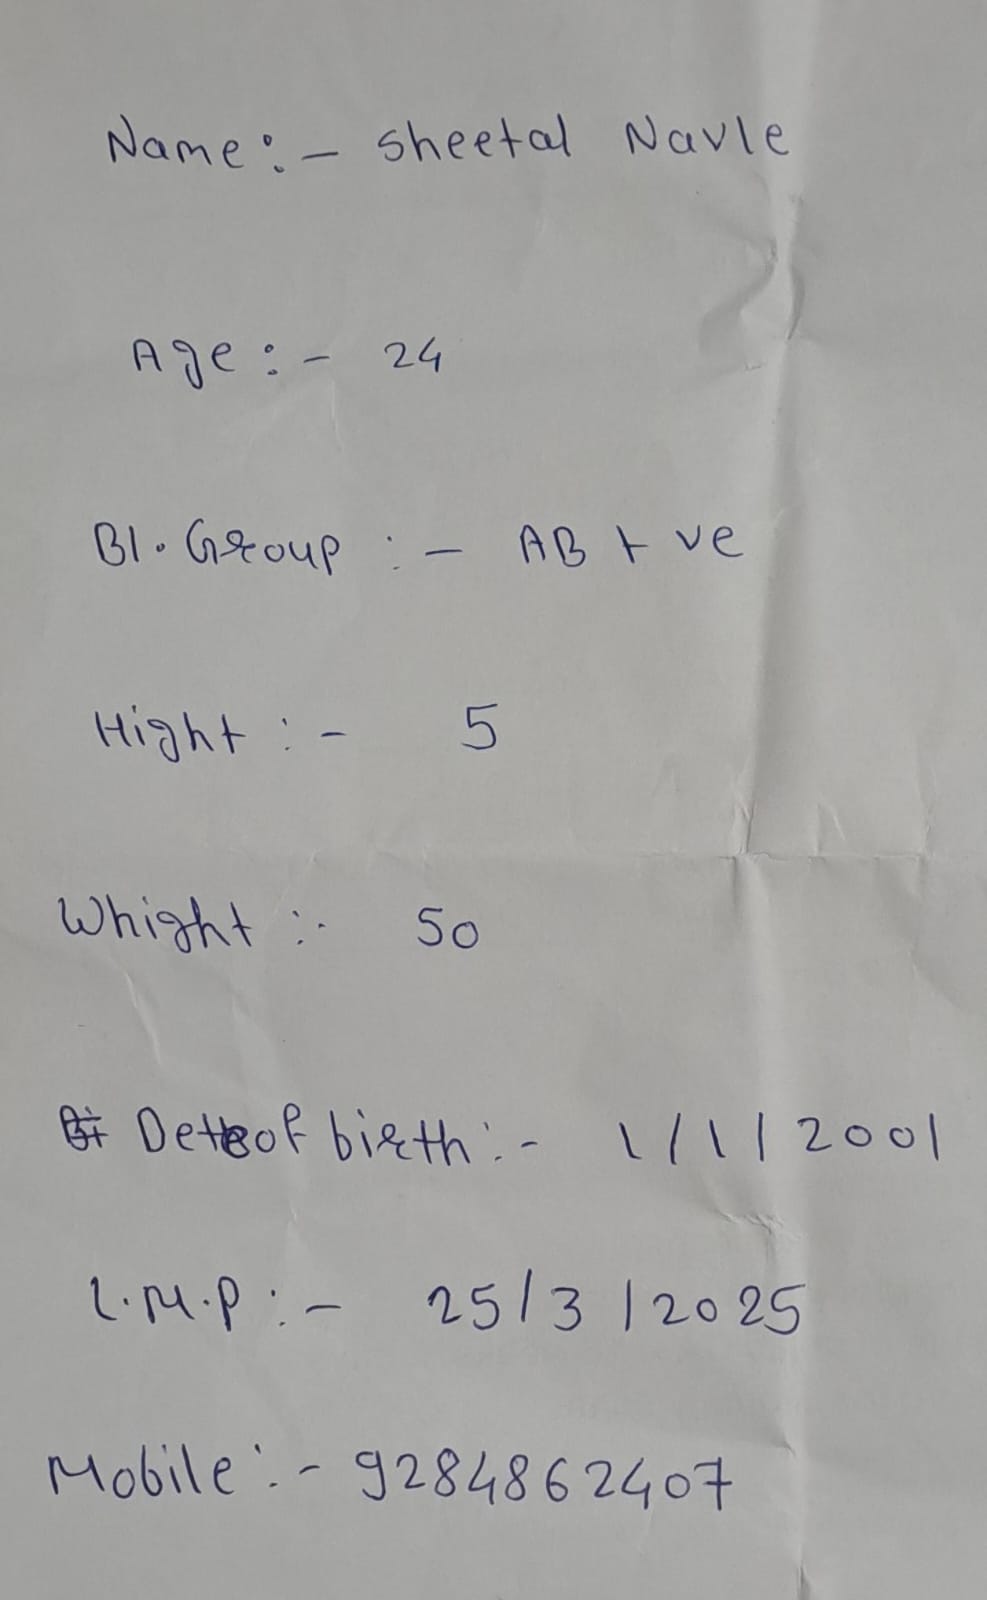 Name :- Sheetal Navle
Age :- 24
Bl. Group :- AB + ve
Hight :- 5
Whight :- 50
Dete of birth :- 1/1/2001
L.M.P :- 25/3/2025
Mobile :- 9284862407